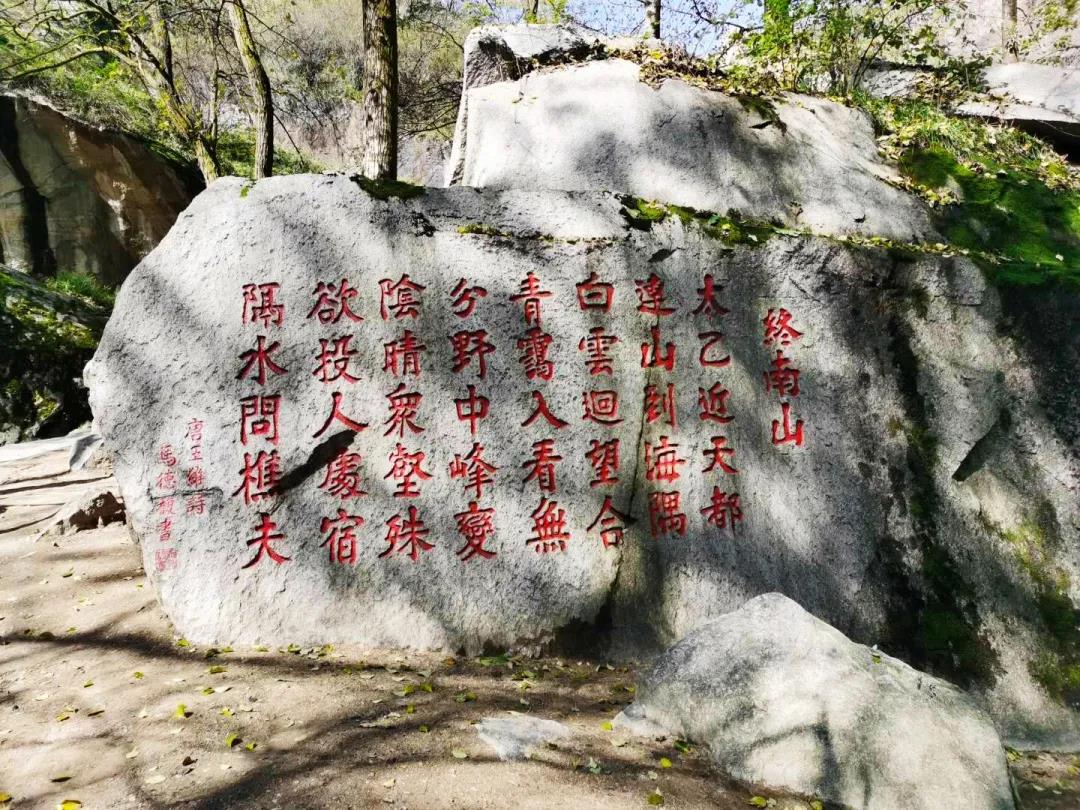 終南山
太乙近天都
連山到海隅
白雲迴望合
青靄入看無
分野中峰變
陰晴衆壑殊
欲投人處宿
隔水問樵夫
唐王維詩
馬德書